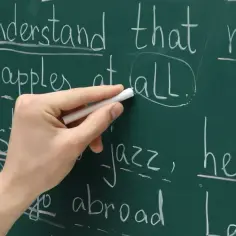 understand that
apples at all.
jazz, he
go abroad